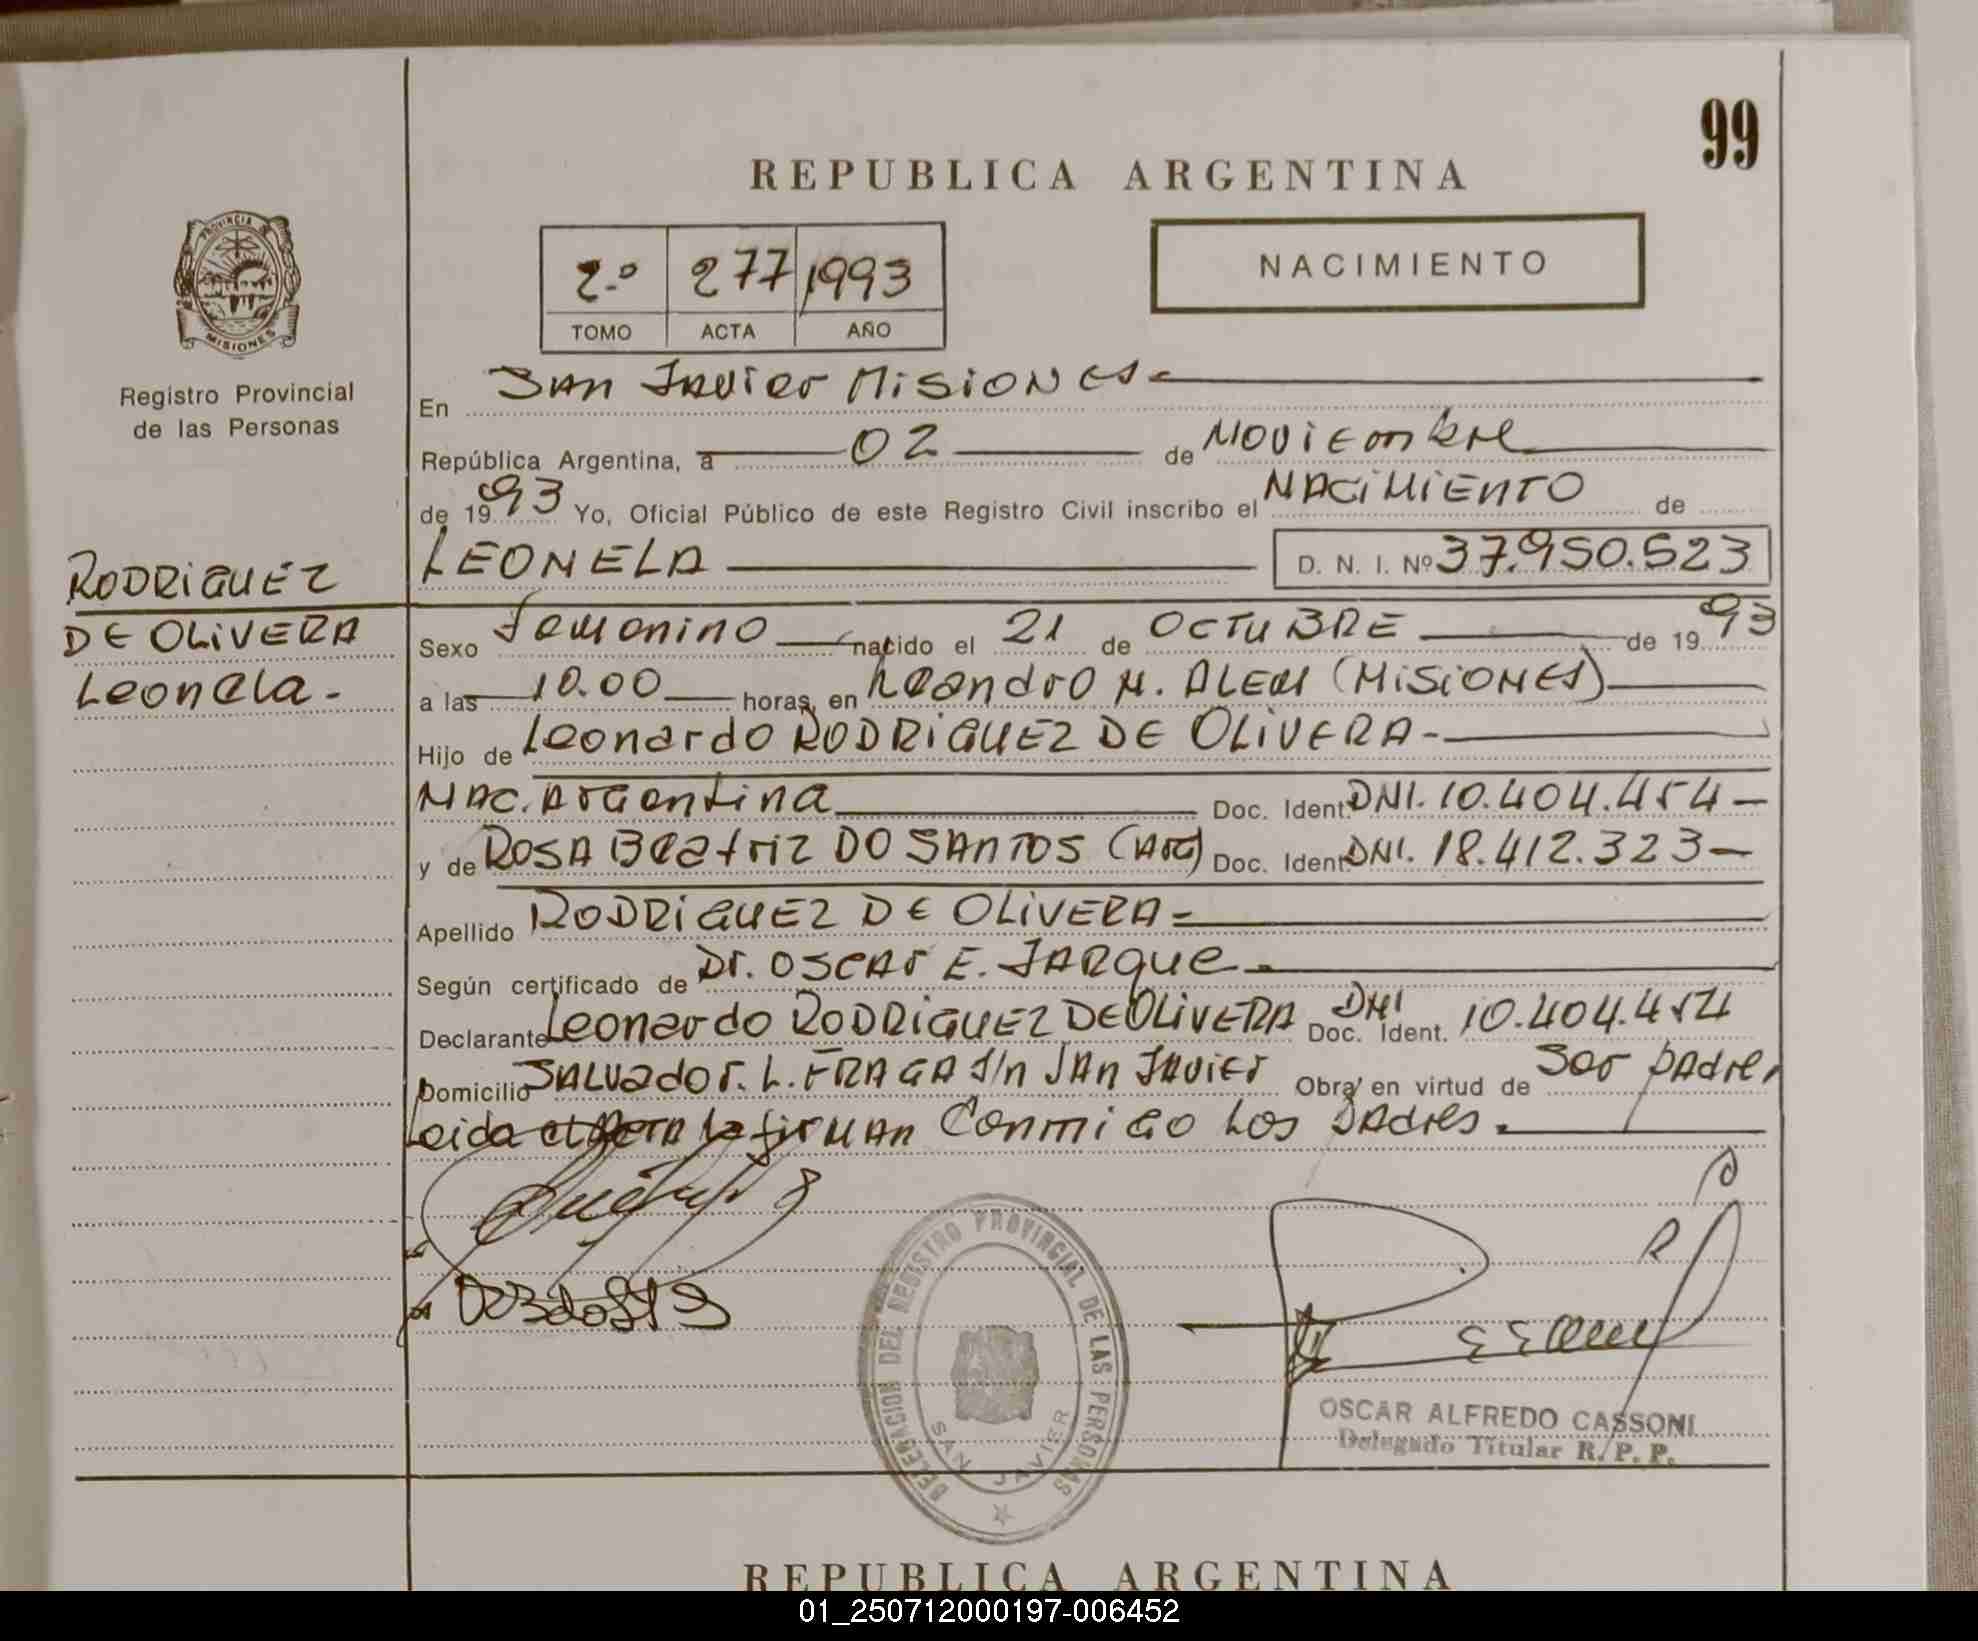 99
REPUBLICA ARGENTINA
PROVINCIA
MISIONES
Registro Provincial
de las Personas
2.º 277 1993
TOMO ACTA AÑO
NACIMIENTO
En San Javier Misiones
República Argentina, a 02 de Noviembre
de 1993 Yo, Oficial Público de este Registro Civil inscribo el NACIMIENTO de
LEONELA D. N. I. Nº 37.950.523
RODRIGUEZ
DE OLIVERA
Leonela.
Sexo Femenino nacido el 21 de OCTUBRE de 1993
a las 10.00 horas, en Leandro N. ALEM (MISIONES)
Hijo de Leonardo RODRIGUEZ DE OLIVERA
NAC. Argentina Doc. Ident. DNI. 10.404.454
y de ROSA Beatriz DO SANTOS (ARG) Doc. Ident. DNI. 18.412.323
Apellido RODRIGUEZ DE OLIVERA
Según certificado de Dr. OSCAR E. JARQUE
Declarante Leonardo RODRIGUEZ DE OLIVERA Doc. Ident. DNI 10.404.454
Domicilio SALVADOR. L. FRAGA S/n San Javier Obra en virtud de Ser padre,
Leida el Acta la firman Conmigo Los Padres.
DELEGACION DEL REGISTRO PROVINCIAL DE LAS PERSONAS
SAN JAVIER
OSCAR ALFREDO CASSONI
Delegado Titular R. P. P.
REPUBLICA ARGENTINA
01_250712000197-006452